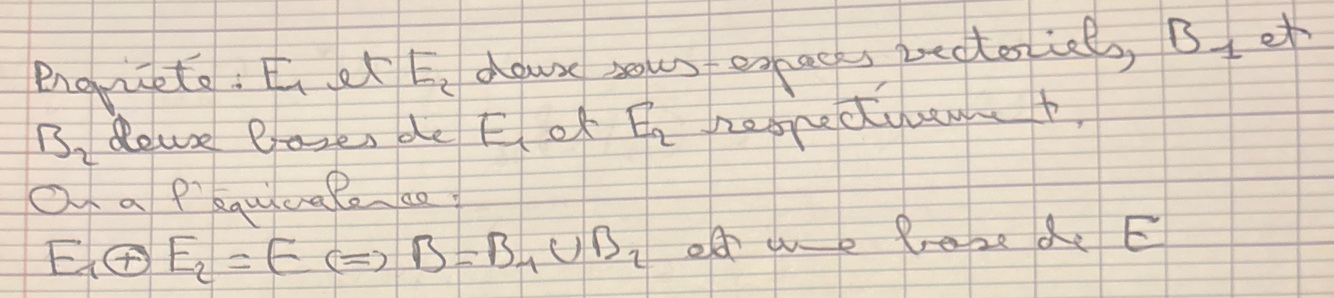 Propriété : E₁ et E₂ deux sous-espaces vectoriels, B₁ et
B₂ deux bases de E₁ et E₂ respectivement.
On a l'équivalence :
E₁ ⊕ E₂ = E ⟺ B = B₁ ∪ B₂ est une base de E